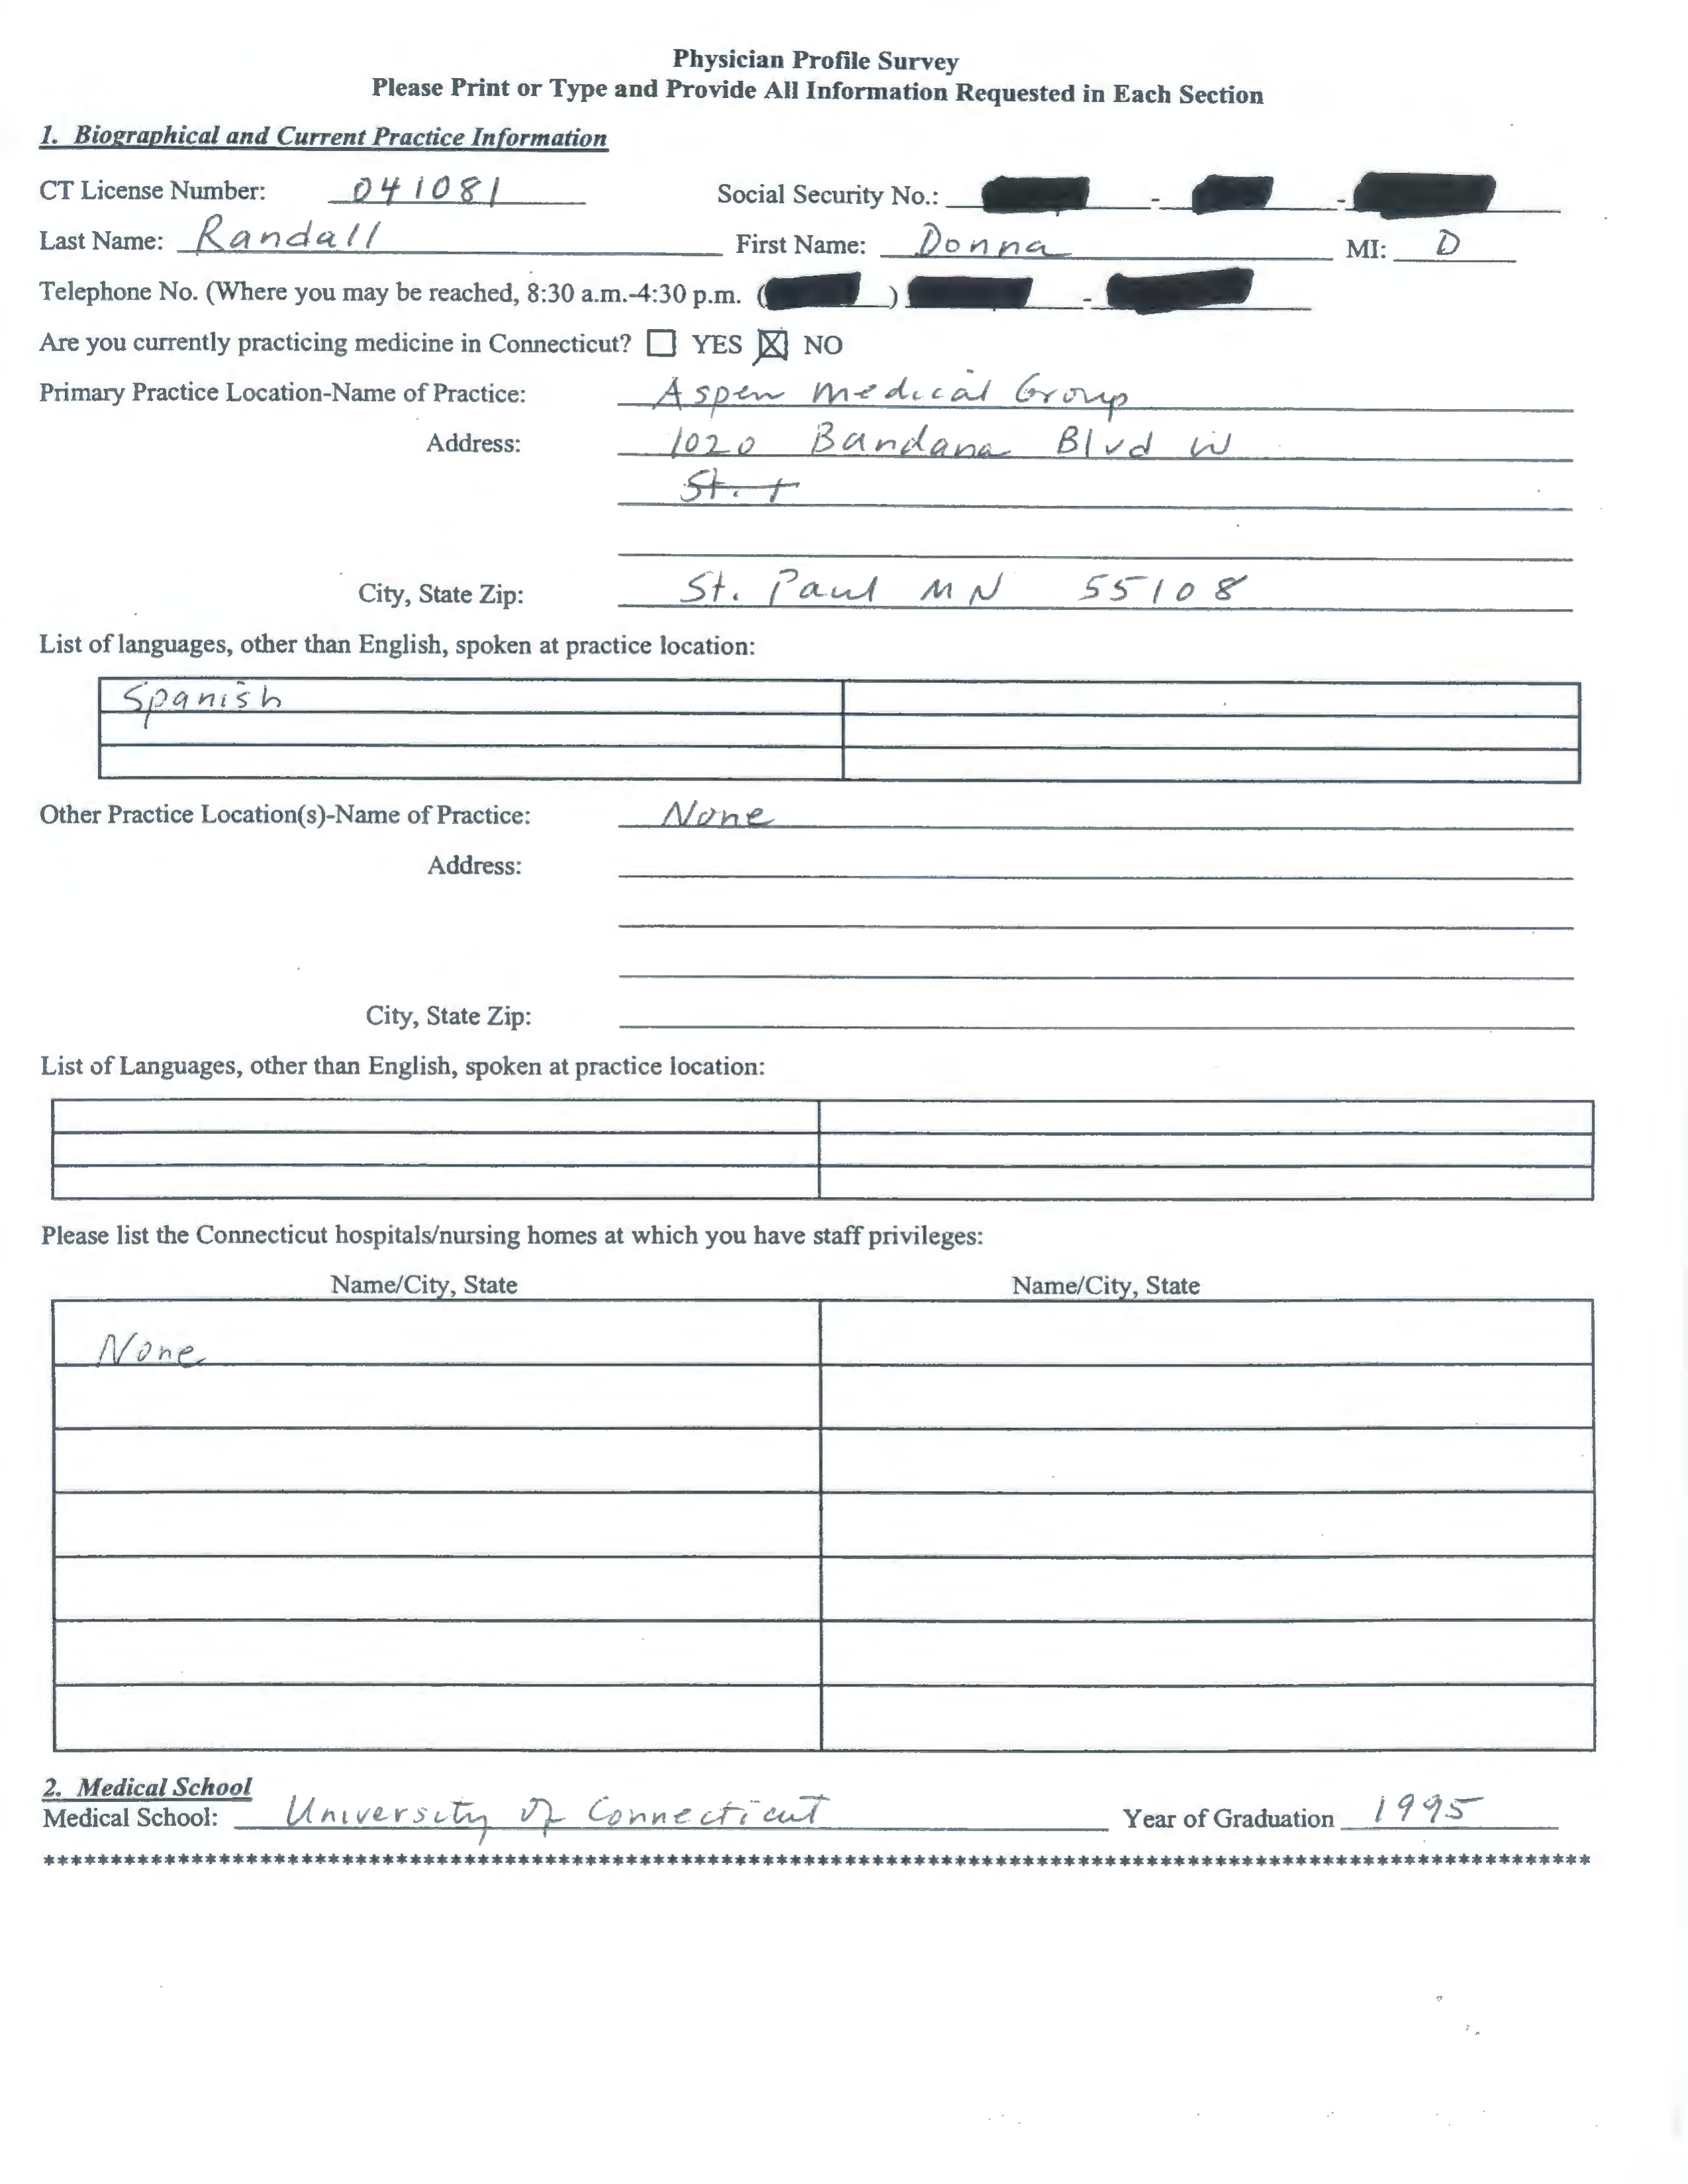 Physician Profile Survey
Please Print or Type and Provide All Information Requested in Each Section
1. Biographical and Current Practice Information
CT License Number: 041081 Social Security No.: - -
Last Name: Randall First Name: Donna MI: D
Telephone No. (Where you may be reached, 8:30 a.m.-4:30 p.m. ( ) -
Are you currently practicing medicine in Connecticut? ☐ YES ☒ NO
Primary Practice Location-Name of Practice: Aspen Medical Group
Address: 1020 Bandana Blvd W
St.
City, State Zip: St. Paul MN 55108
List of languages, other than English, spoken at practice location:
Spanish
Other Practice Location(s)-Name of Practice: None
Address:
City, State Zip:
List of Languages, other than English, spoken at practice location:
Please list the Connecticut hospitals/nursing homes at which you have staff privileges:
Name/City, State Name/City, State
None
2. Medical School
Medical School: University of Connecticut Year of Graduation 1995
******************************************************************************************************************